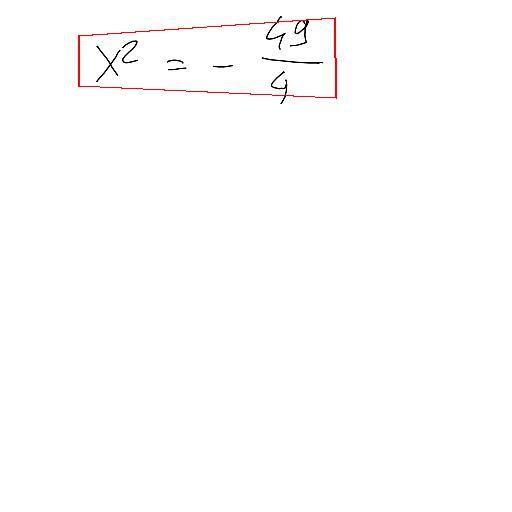 x² = - 49/4